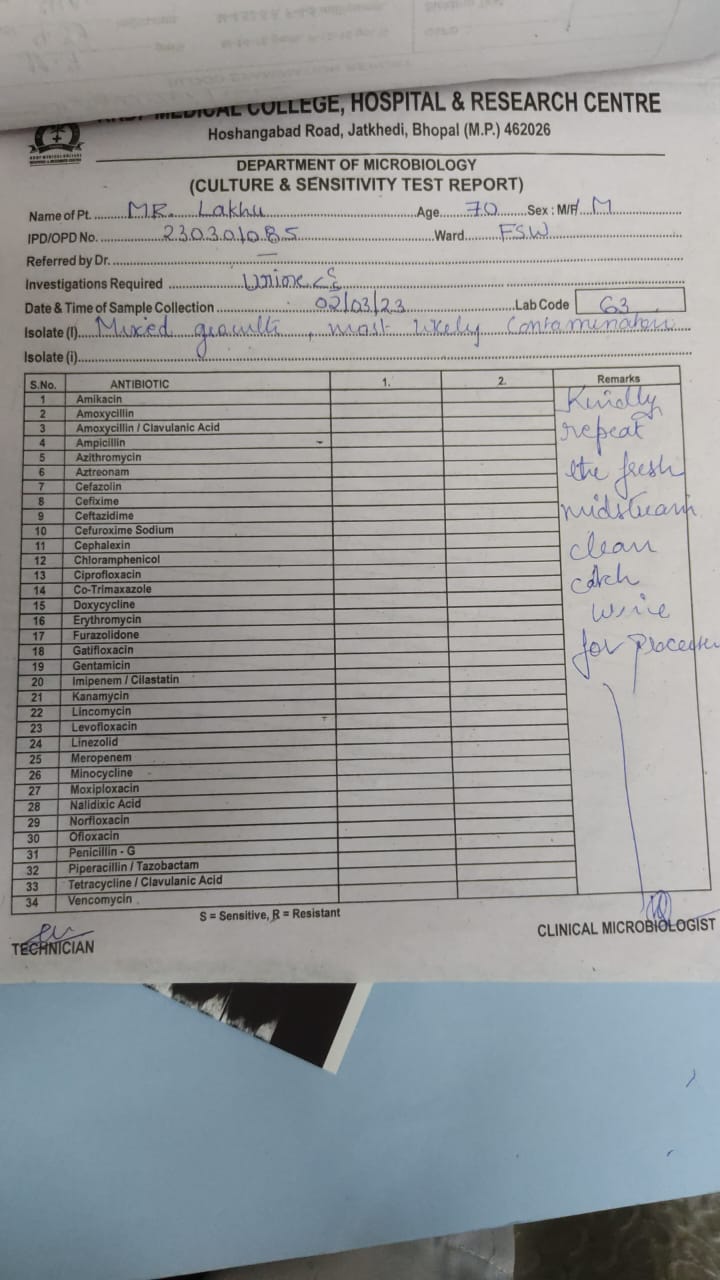 MEDICAL COLLEGE, HOSPITAL & RESEARCH CENTRE
Hoshangabad Road, Jatkhedi, Bhopal (M.P.) 462026
DEPARTMENT OF MICROBIOLOGY
(CULTURE & SENSITIVITY TEST REPORT)
Name of Pt. MR. Lakhu Age 70 Sex : M/F M
IPD/OPD No. 230301085 Ward FSW
Referred by Dr. —
Investigations Required Urine C/S
Date & Time of Sample Collection 02/03/23 Lab Code 63
Isolate (I) Mixed growth, most likely contamination
Isolate (i)
S.No. ANTIBIOTIC 1. 2. Remarks
1 Amikacin
2 Amoxycillin
3 Amoxycillin / Clavulanic Acid
4 Ampicillin
5 Azithromycin
6 Aztreonam
7 Cefazolin
8 Cefixime
9 Ceftazidime
10 Cefuroxime Sodium
11 Cephalexin
12 Chloramphenicol
13 Ciprofloxacin
14 Co-Trimaxazole
15 Doxycycline
16 Erythromycin
17 Furazolidone
18 Gatifloxacin
19 Gentamicin
20 Imipenem / Cilastatin
21 Kanamycin
22 Lincomycin
23 Levofloxacin
24 Linezolid
25 Meropenem
26 Minocycline
27 Moxiploxacin
28 Nalidixic Acid
29 Norfloxacin
30 Ofloxacin
31 Penicillin - G
32 Piperacillin / Tazobactam
33 Tetracycline / Clavulanic Acid
34 Vencomycin
Kindly
repeat
the fresh
midstream
clean
catch
urine
for
S = Sensitive, R = Resistant
TECHNICIAN
CLINICAL MICROBIOLOGIST